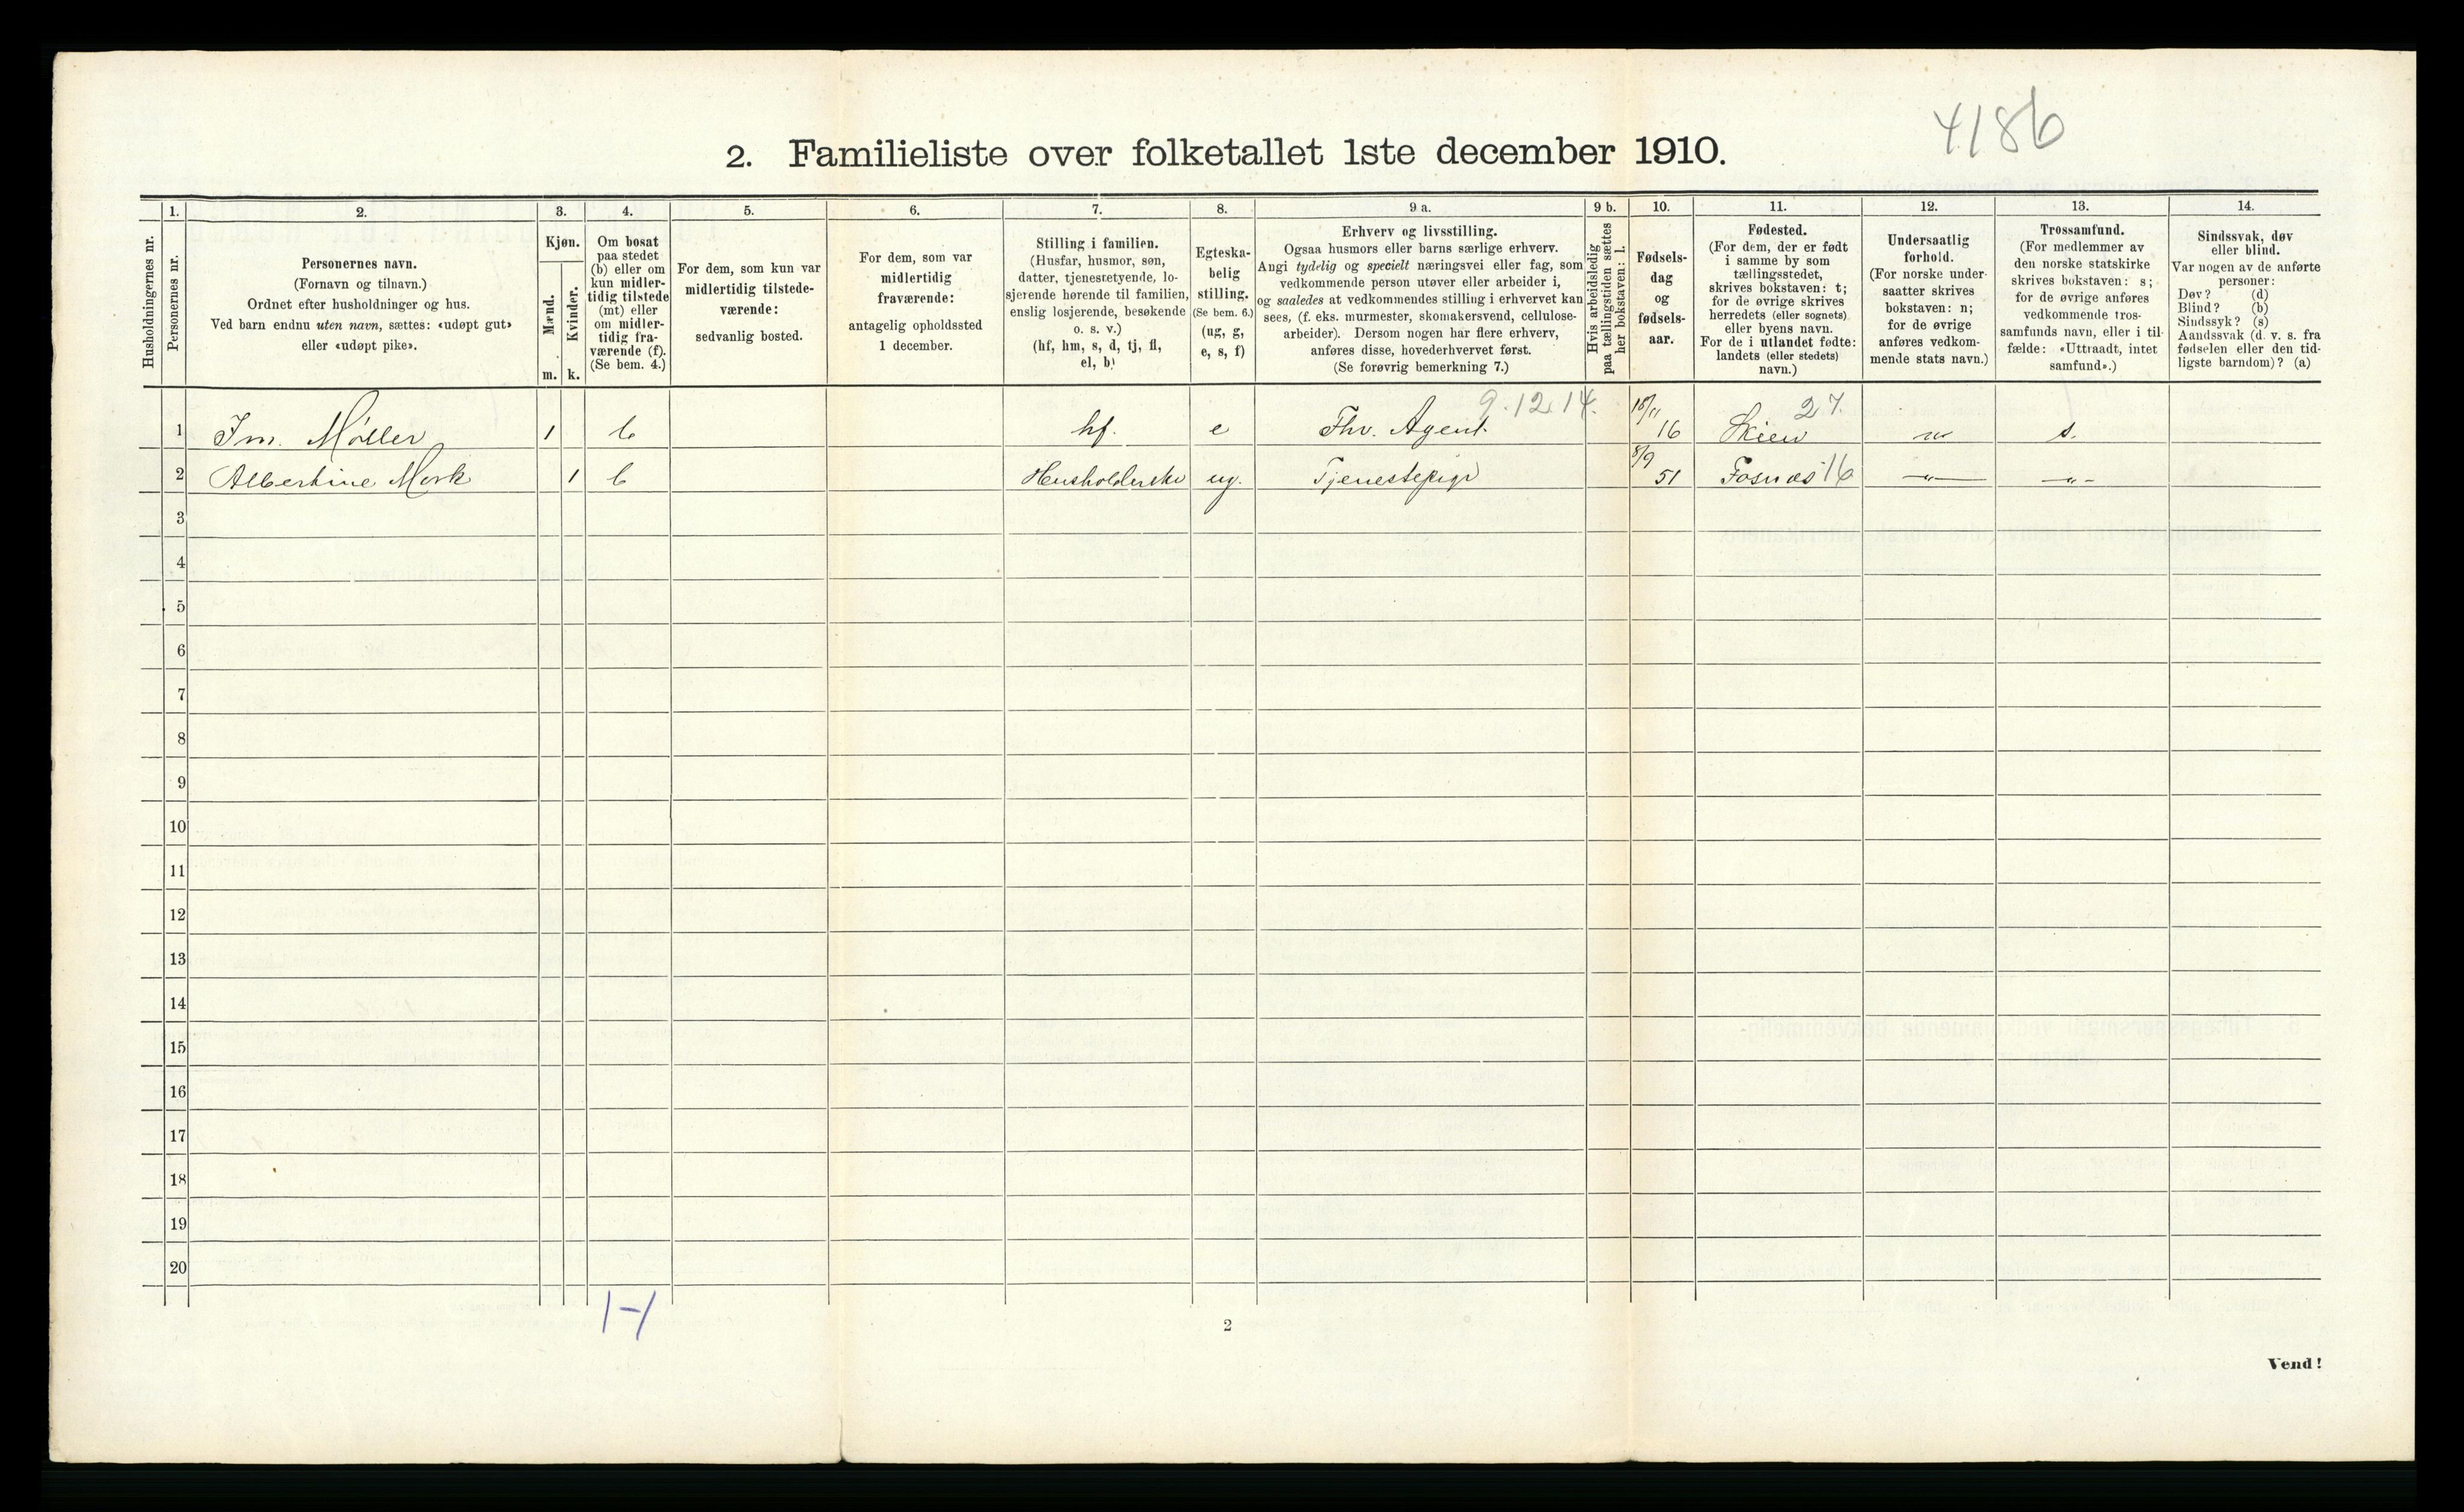 4186
2. Familieliste over folketallet 1ste december 1910.
Husholdningernes nr.
1.
Personernes nr.
2.
Personernes navn.
(Fornavn og tilnavn.)
Ordnet efter husholdninger og hus.
Ved barn endnu uten navn, sættes: «udøpt gut»
eller «udøpt pike».
3.
Kjøn.
Mænd.
Kvinder.
m. k.
4.
Om bosat
paa stedet
(b) eller om
kun midler-
tidig tilstede
(mt) eller
om midler-
tidig fra-
værende (f).
(Se bem. 4.)
5.
For dem, som kun var
midlertidig tilstede-
værende:
sedvanlig bosted.
6.
For dem, som var
midlertidig
fraværende:
antagelig opholdssted
1 december.
7.
Stilling i familien.
(Husfar, husmor, søn,
datter, tjenestetyende, lo-
sjerende hørende til familien,
enslig losjerende, besøkende
o. s. v.)
(hf, hm, s, d, tj, fl,
el, b)
8.
Egteska-
belig
stilling.
(Se bem. 6.)
(ug, g,
e, s, f)
9 a.
Erhverv og livsstilling.
Ogsaa husmors eller barns særlige erhverv.
Angi tydelig og specielt næringsvei eller fag, som
vedkommende person utøver eller arbeider i,
og saaledes at vedkommendes stilling i erhvervet kan
sees, (f. eks. murmester, skomakersvend, cellulose-
arbeider). Dersom nogen har flere erhverv,
anføres disse, hovederhvervet først.
(Se forøvrig bemerkning 7.)
9 b.
Hvis arbeidsledig
paa tællingstiden sættes
her bokstaven: l.
10.
Fødsels-
dag
og
fødsels-
aar.
11.
Fødested.
(For dem, der er født
i samme by som
tællingsstedet,
skrives bokstaven: t;
for de øvrige skrives
herredets (eller sognets)
eller byens navn.
For de i utlandet fødte:
landets (eller stedets)
navn.)
12.
Undersaatlig
forhold.
(For norske under-
saatter skrives
bokstaven: n;
for de øvrige
anføres vedkom-
mende stats navn.)
13.
Trossamfund.
(For medlemmer av
den norske statskirke
skrives bokstaven: s;
for de øvrige anføres
vedkommende tros-
samfunds navn, eller i til-
fælde: «Uttraadt, intet
samfund».)
14.
Sindssvak, døv
eller blind.
Var nogen av de anførte
personer:
Døv? (d)
Blind? (b)
Sindssyk? (s)
Aandssvak (d. v. s. fra
fødselen eller den tid-
ligste barndom)? (a)
9.12.14. 27.
1 Im. Møller 1 b hf. e Fhv. Agent 16 Skien n s.
2 Albertine Mork 1 b Husholderske ug. Tjenestepige 8/9 51 Fosnæs 16 -"- -"-
3
4
5
6
7
8
9
10
11
12
13
14
15
16
17
18
19
20
1-1
2
Vend!